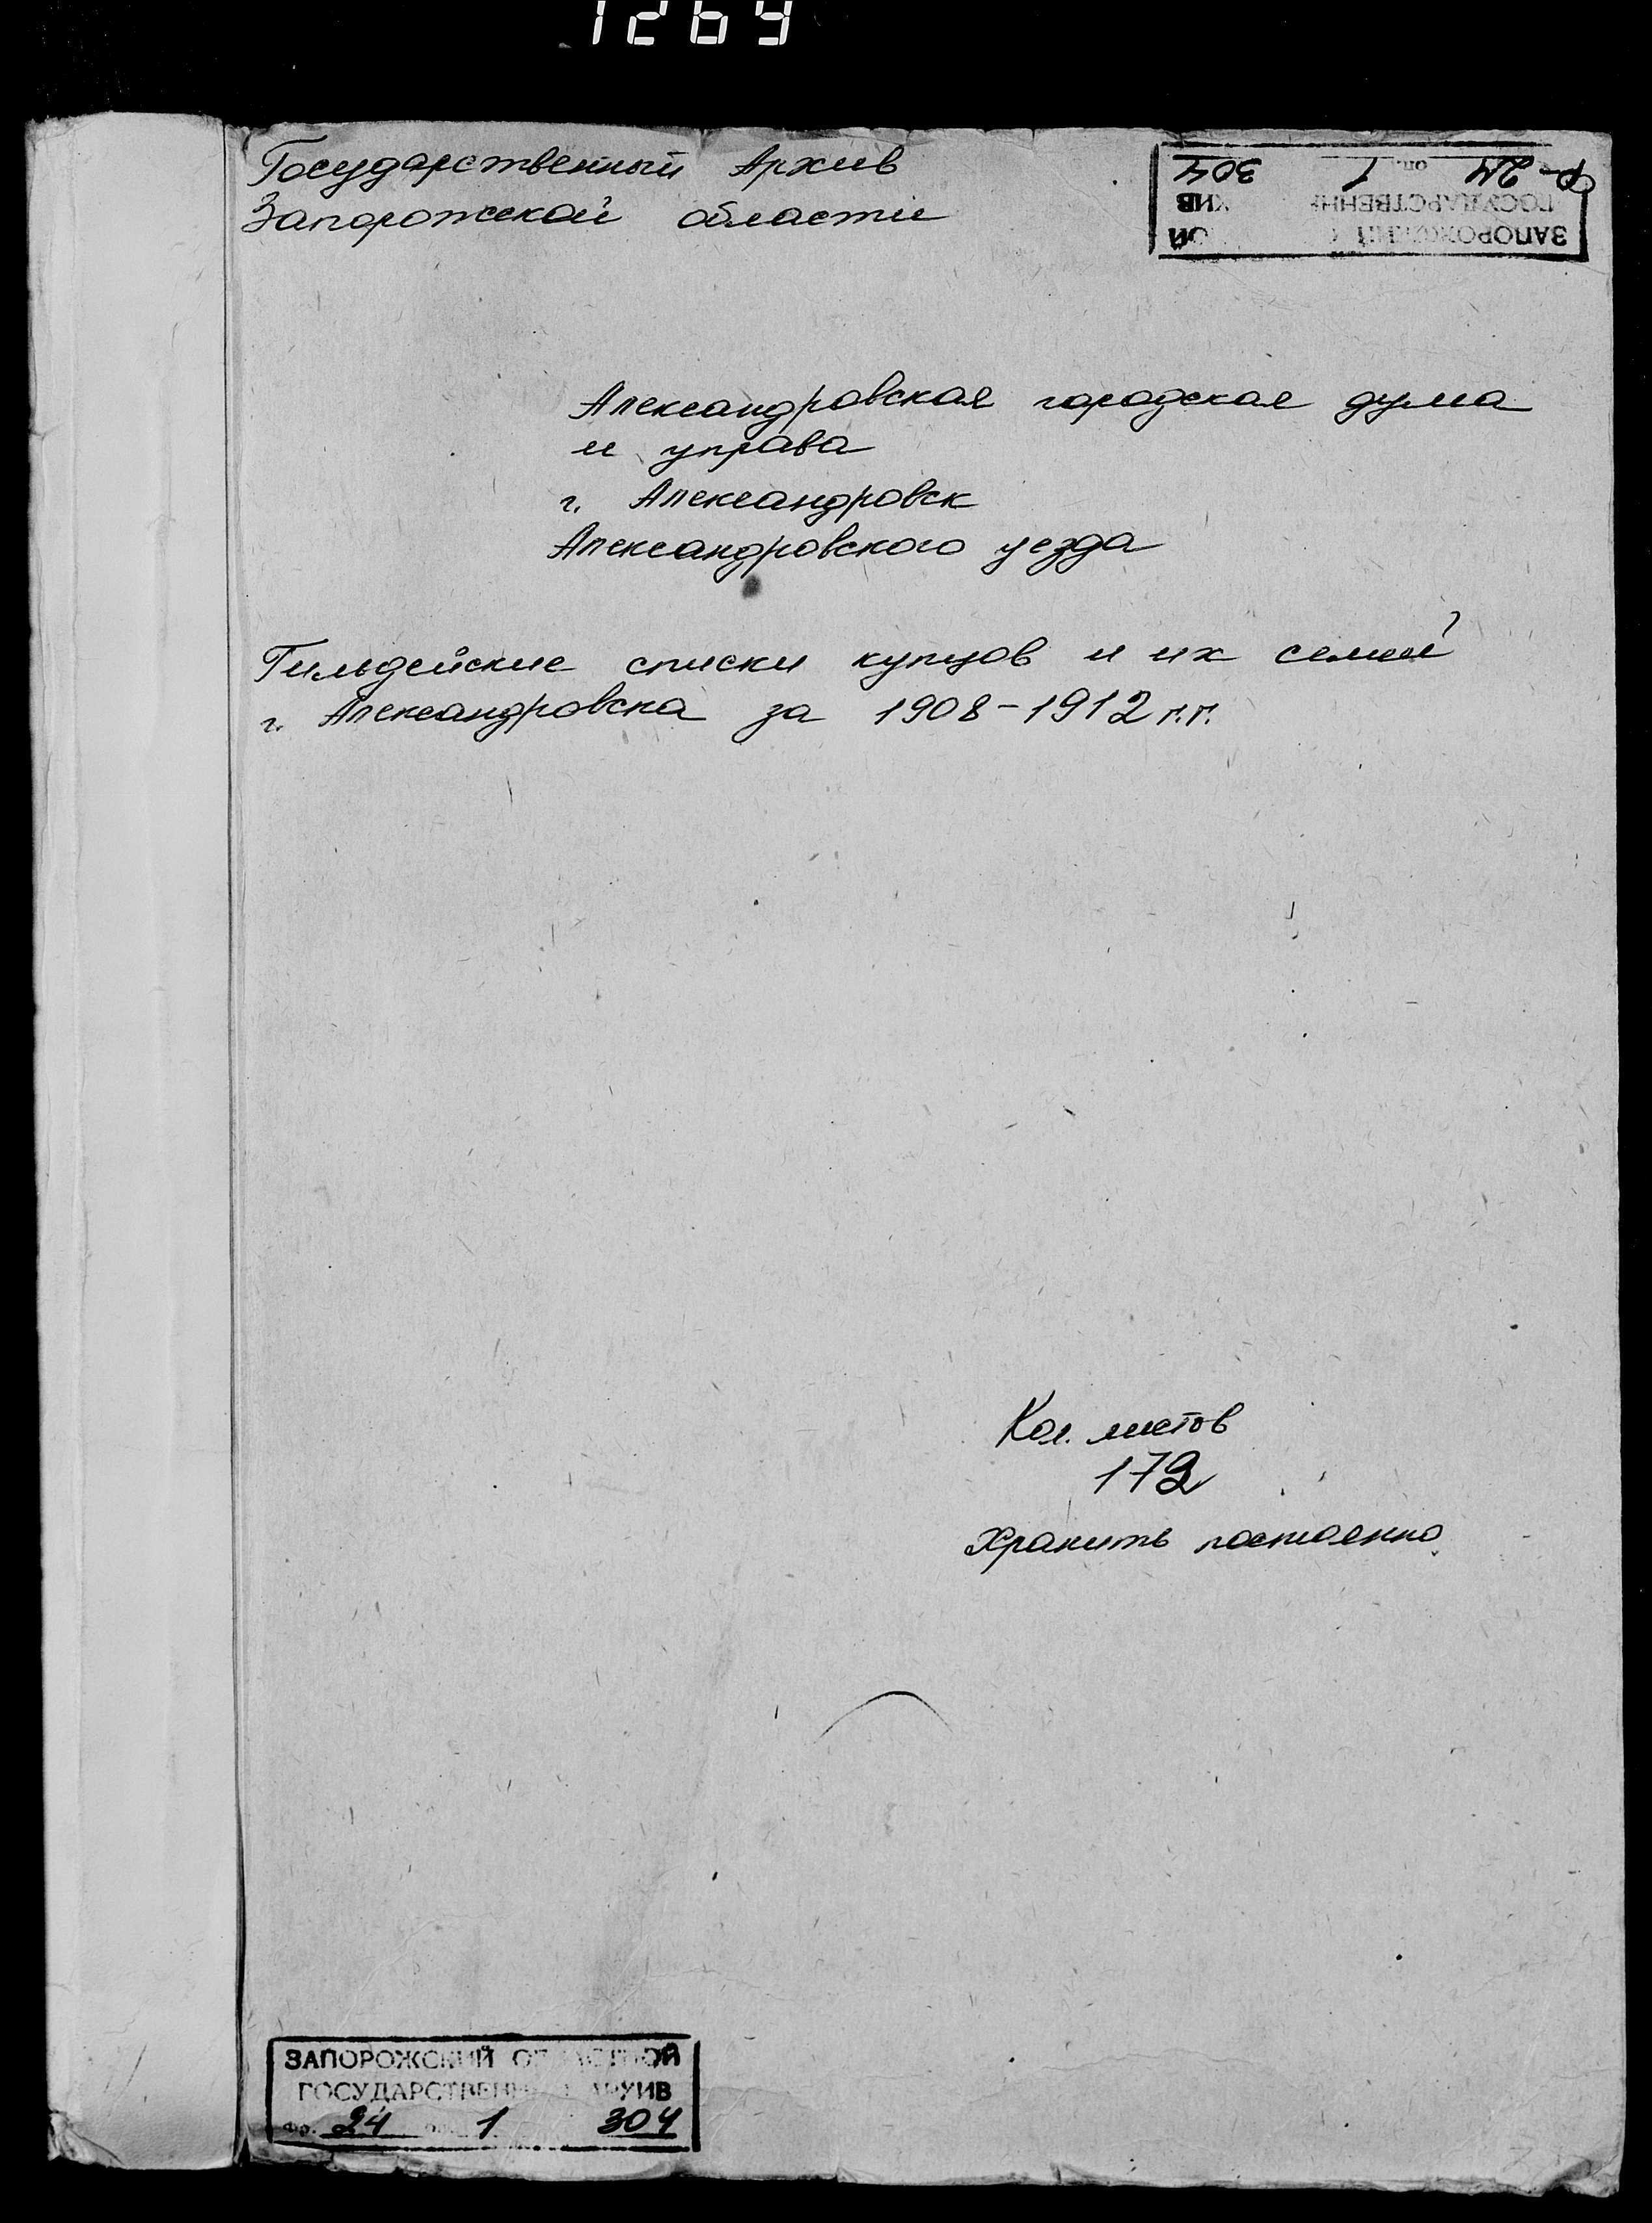 1269
Государственный Архив
Запорожской области
Ф-24 оп. 1 304
ГОСУДАРСТВЕНН ХИВ
ЗАПОРОЖСКИЙ ОЙ
Александровская городская дума
и управа
г. Александровск
Александровского уезда
Гильдейские списки купцов и их семей
г. Александровска за 1908-1912 г.г.
Кол. листов
172
Хранить постоянно
ЗАПОРОЖСКИЙ ОБЛАСТНОЙ
ГОСУДАРСТВЕННЫЙ АРХИВ
Фо. 24 оп. 1 304